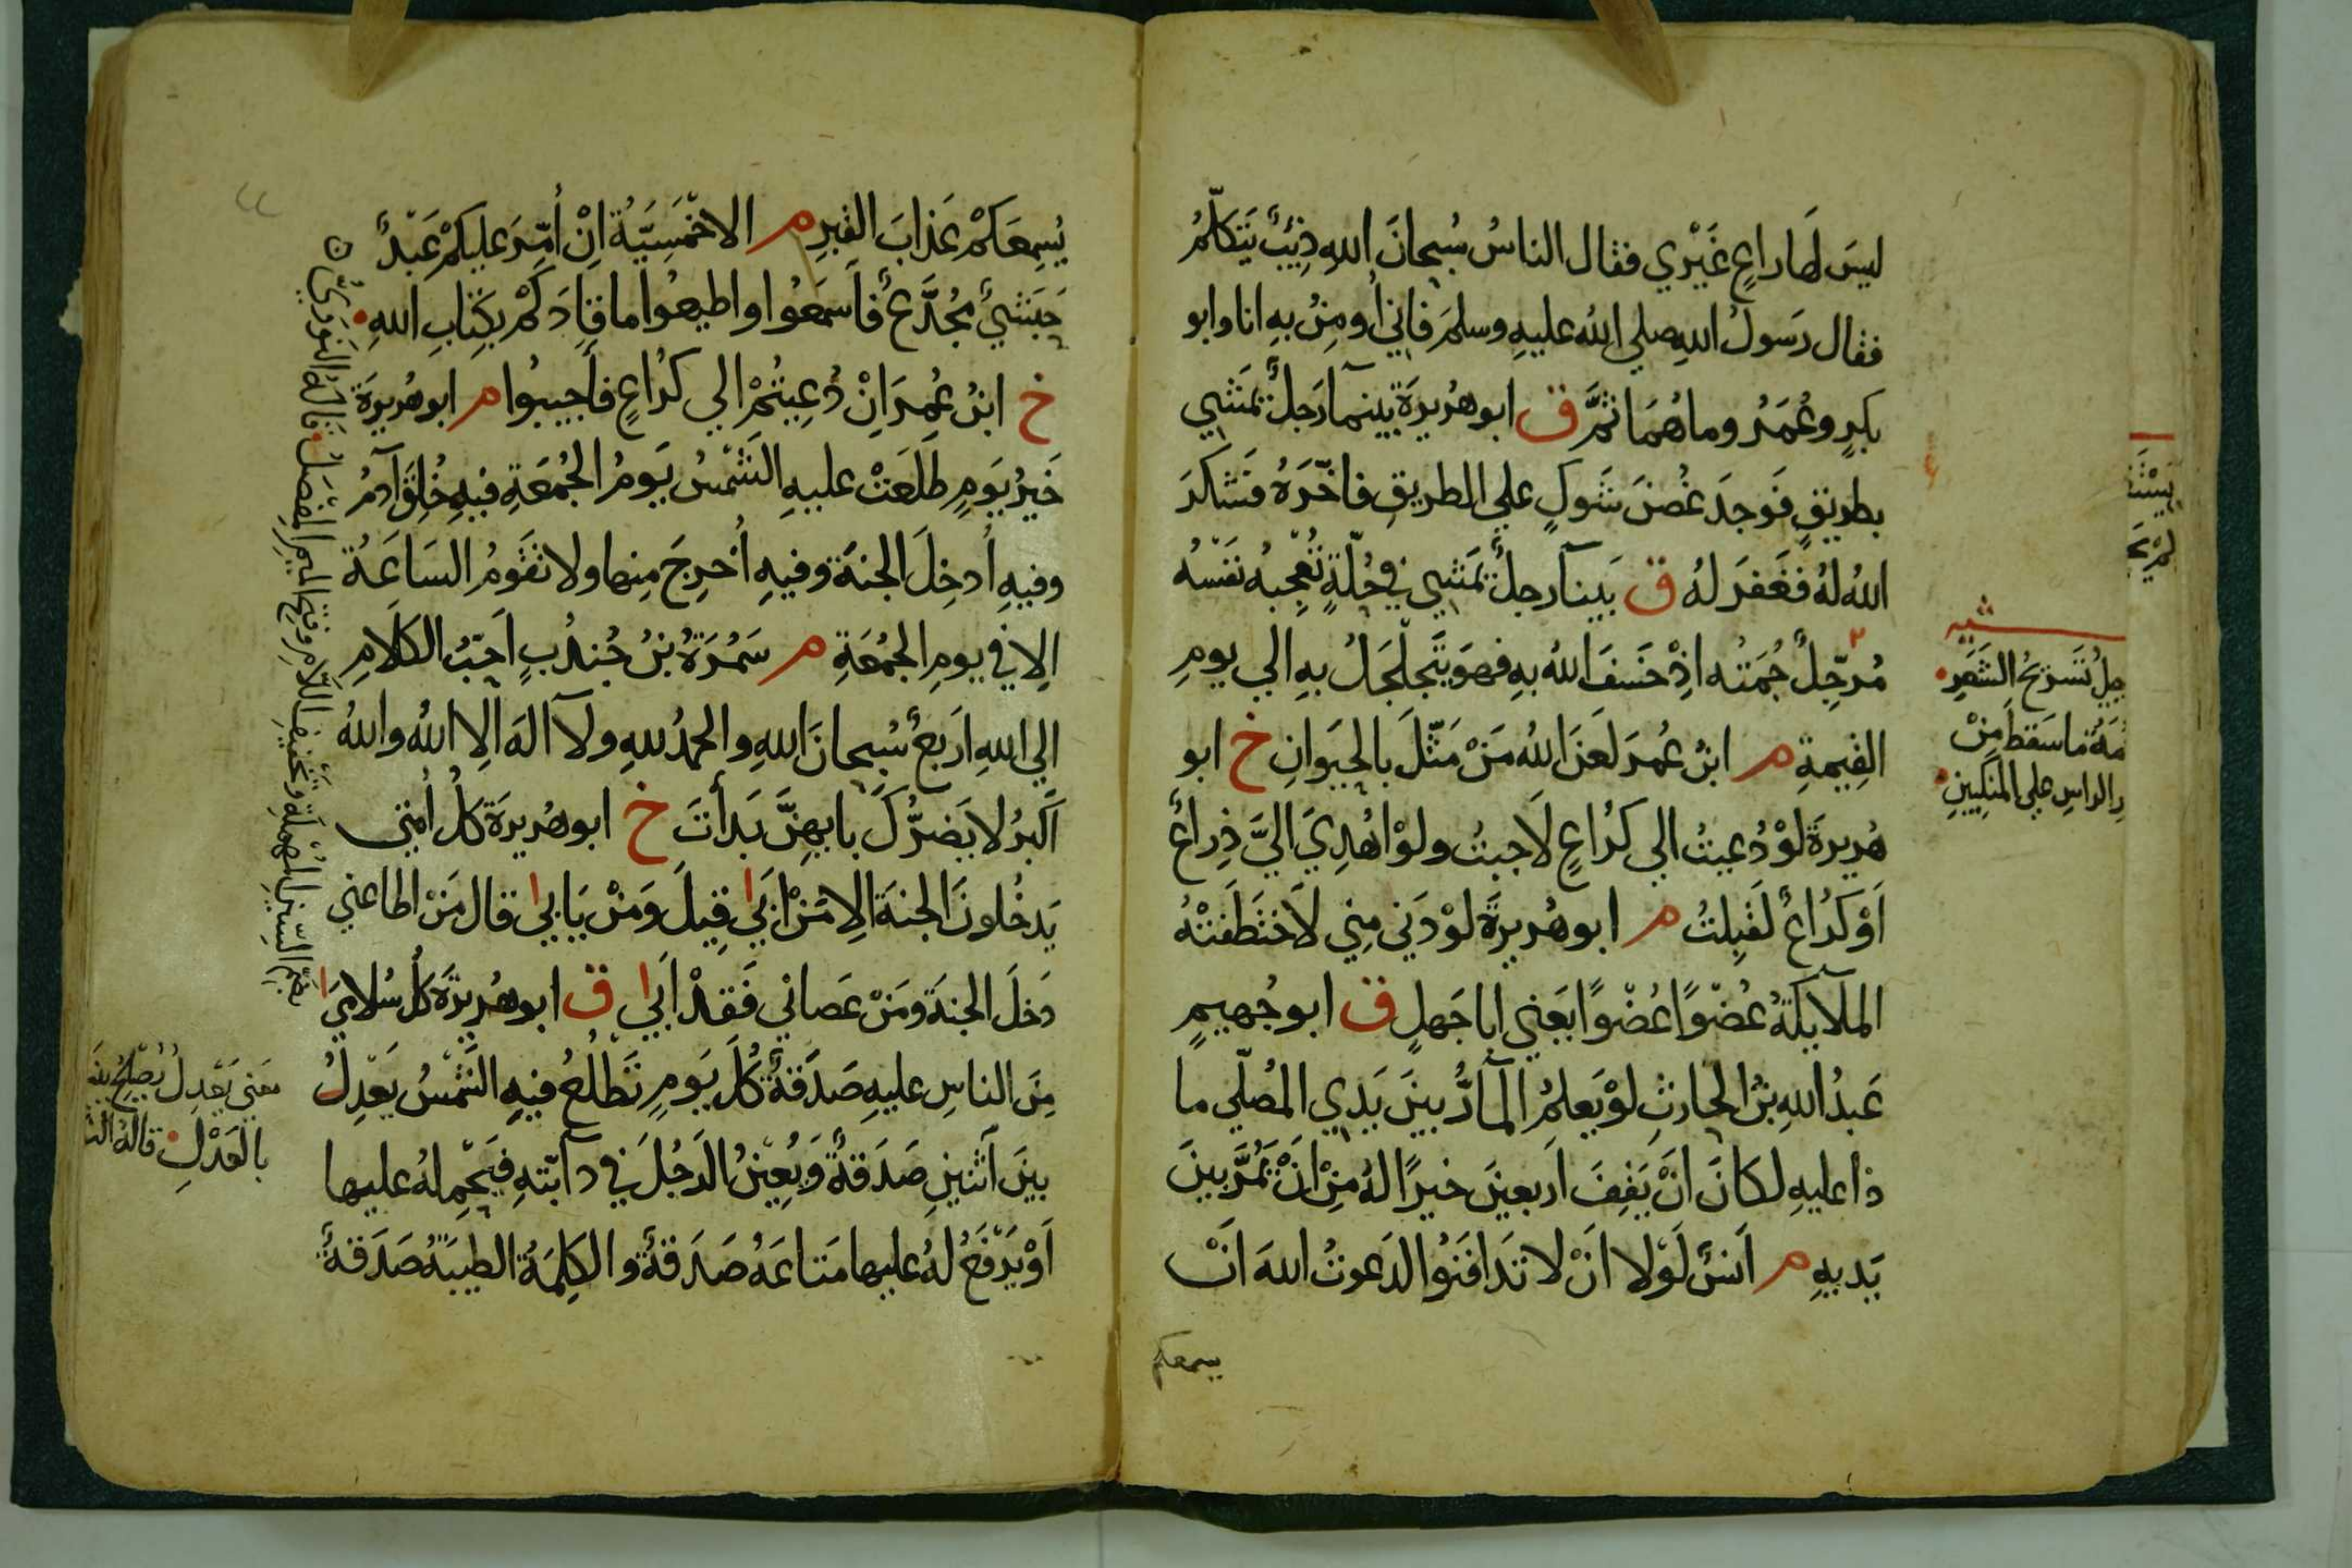 ليسَ لَها راعٍ غَيْري فقال الناسُ سُبحانَ اللهِ ذِئبٌ يَتَكلّمُ
فقال رَسولُ اللهِ صلي الله عليهِ وسلمَ فاِني اُومِنُ بهِ انا وابو
بكرٍ وعُمَرُ وما هُمَا ثَمَّ ق ابو هُريرَةَ بينمآ رَجلٌ يَمشي
بطريقٍ فَوجدَ غُصنَ شَوكٍ علي الطريقِ فاخّرَهُ فشَكرَ
اللهُ لهُ فغَفرَ لهُ ق بَينآ رجلٌ يَمشي في حُلّةٍ تُعْجبهُ نَفسُه
مُرجِّلٌ جُمَتُه اِذْ خسَفَ اللهُ بهِ فهوَ يتَجلْجَلُ بهِ الي يومِ
القِيمةِ م ابنُ عُمرَ لعَنَ اللهُ مَنْ مَثّلَ بالحيَوانِ خ ابو
هُريرةَ لوْ دُعيتُ الي كُراعٍ لَاجبتُ ولوْ اهْدِيَ اليَّ ذِراعٌ
اَوْ كُراعٌ لقَبِلتُ م ابو هُريرةَ لوْ دَني مِني لاَختَطَفتْهُ
الملآيكةُ عُضْوًا عُضْوًا يَعني ابا جَهلٍ ق ابو جُهيمٍ
عَبدُ اللهِ بنُ الحارثِ لوْ يَعلمُ المآرُّ بينَ يَدي المُصلّي ما
ذا عليهِ لكانَ اَنْ يَقفَ اَربعينَ خيرًا لهُ مِنْ اَنْ يَمُرَّ بينَ
يَديهِ م اَنسٌ لَوْلا اَنْ لا تَدافَنُوا لدَعوتُ اللهَ اَنْ
يسمعكم
جِلُ تَسريحُ الشَعَرِ
مةُ ما سَقطَ مِنْ
رِ الراسِ علي المَنكِبينِ
يُسمِعَكمْ عَذابَ القبرِ م الاخْمَسِيّةُ اِنْ اُمِّرَ عليكمْ عَبْدٌ
حَبَشيٌ مُجَدَّعٌ فاَسمَعُوا واطيعُوا ما قادَكمْ بكِتابِ اللهِ
خ ابنُ عُمرَ اِنْ دُعِيتُمْ الي كُراعٍ فأَجيبُوا م ابو هُريرَةَ
خَيرُ يَومٍ طلَعَتْ عليهِ الشَمْسُ يَومُ الجُمعَةِ فيهِ خُلِقَ آدمُ
وفيهِ اُدخِلَ الجنةَ وفيهِ اُخرِجَ مِنها ولا تقَومُ السَاعَةُ
اِلا في يومِ الجمُعَةِ م سَمُرَةُ بنُ جُندُبٍ اَحَبُّ الكلامِ
الي اللهِ اَربعٌ سُبحانَ اللهِ والحمدُ للهِ ولآ الهَ اِلا اللهُ واللهُ
اَكبرُ لا يَضرُّكَ بايهِنَّ بَدأتَ خ ابو هُريرَةَ كلُ اُمتي
يَدخُلونَ الجنةَ اِلا مَنْ اَبَي قِيلَ وَمَنْ يَابي قال مَنْ اطاعني
دَخلَ الجنةَ ومَنْ عَصاني فَقدْ اَبَي ق ابو هُريرَةَ كلُ سُلامَي
مِنَ الناسِ عليهِ صَدَقةٌ كُلَ يَومٍ تَطلُعُ فيهِ الشَمْسُ يَعْدِلُ
بينَ اَثنينِ صَدَقةٌ وَيُعِينُ الرَجُلَ في دآبّتهِ فيَحْمِلهُ عليها
اَوْ يَرْفَعُ لهُ عليها مَتاعَهُ صَدَقةٌ والكلِمَةُ الطيبَةُ صَدَقةٌ
بضم السّينِ المُهملةِ وتخفيفِ اللّامِ وفتح الميمِ المَفِصَلُ قالهُ النوَوِيُّ
مَعني يَعْدِلُ يُصْلِحُ بينَ
بالعَدْلِ قالهُ